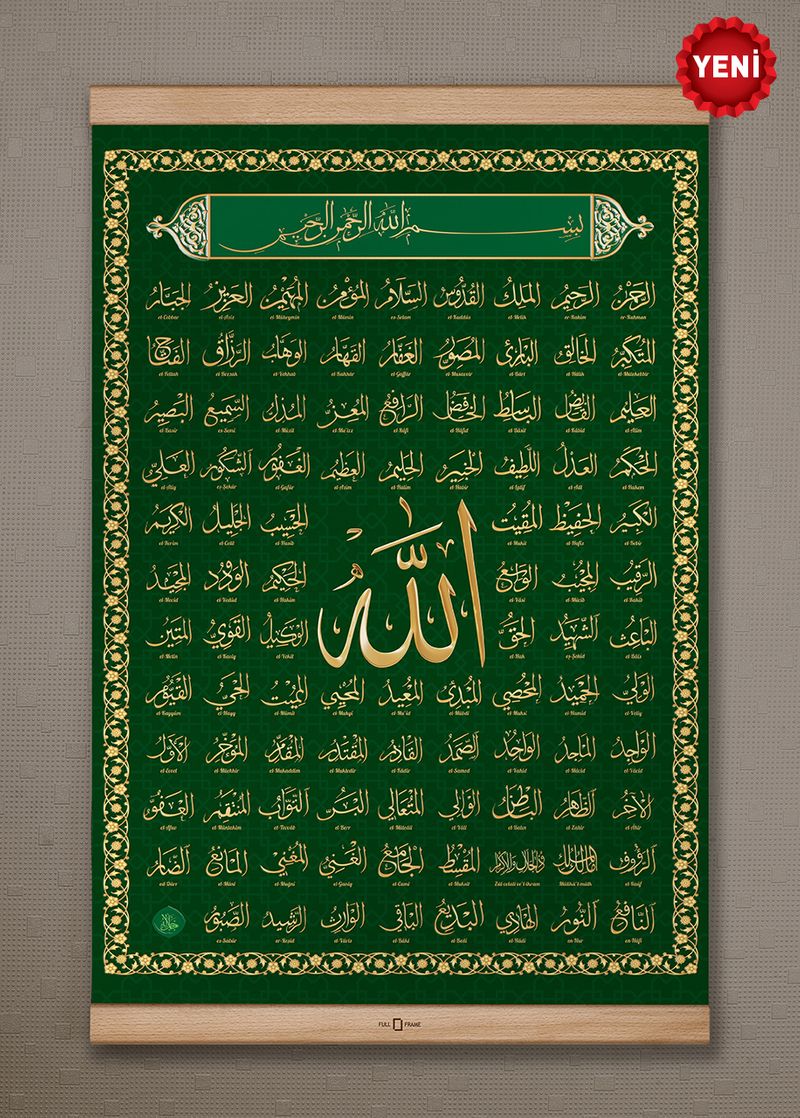 YENİ
بسم الله الرحمن الرحيم
الرحمن الرحيم الملك القدوس السلام المؤمن المهيمن العزيز الجبار
er-Rahman er-Rahim el-Melik el-Kuddüs es-Selam el-Mümin el-Müheymin el-Aziz el-Cebbar
المتكبر الخالق البارئ المصور الغفار القهار الوهاب الرزاق الفتاح
el-Mütekebbir el-Hâlık el-Bâri el-Musavvir el-Gaffâr el-Kahhâr el-Vehhab er-Rezzak el-Fettah
العليم القابض الباسط الخافض الرافع المعز المذل السميع البصير
el-Alim el-Kâbıd el-Bâsit el-Hâfid er-Râfi el-Mu'izz el-Müzil es-Semi el-Basir
الحكم العدل اللطيف الخبير الحليم العظيم الغفور الشكور العلي
el-Hakem el-Adl el-Latif el-Habir el-Halim el-Azim el-Gafûr eş-Şekûr el-Aliy
الكبير الحفيظ المقيت الحسيب الجليل الكريم
el-Kebir el-Hafîz el-Mukît el-Hasib el-Celil el-Kerim
الله
الرقيب المجيب الواسع الحكيم الودود المجيد
er-Rakib el-Mücib el-Vâsi el-Hakim el-Vedûd el-Mecid
الباعث الشهيد الحق الوكيل القوي المتين
el-Bâis eş-Şehid el-Hak el-Vekil el-Kaviy el-Metin
الولي الحميد المحصي المبدئ المعيد المحيي المميت الحي القيوم
el-Veliy el-Hamid el-Muhsi el-Mübdi el-Mu'id el-Muhyi el-Mümit el-Hayy el-Kayyûm
الواجد الماجد الواحد الصمد القادر المقتدر المقدم المؤخر الأول
el-Vâcid el-Mâcid el-Vahid es-Samed el-Kâdir el-Muktedir el-Mukaddim el-Müehhir el-Evvel
الآخر الظاهر الباطن الوالي المتعالي البر التواب المنتقم العفو
el-Âhir ez-Zahir el-Batın el-Vâli el-Müteâli el-Berr et-Tevvâb el-Müntekim el-Afüv
الرؤوف مالك الملك ذو الجلال والإكرام المقسط الجامع الغني المغني المانع الضار
er-Raûf Mâlikü'l-mülk Zül celali ve'l-ikram el-Muksit el-Cami el-Ganiy el-Muğni el-Mâni ed-Dârr
النافع النور الهادي البديع الباقي الوارث الرشيد الصبور
en-Nâfi en-Nur el-Hâdi el-Bedi el-Bâki el-Vâris er-Reşid es-Sabûr
FULL FRAME